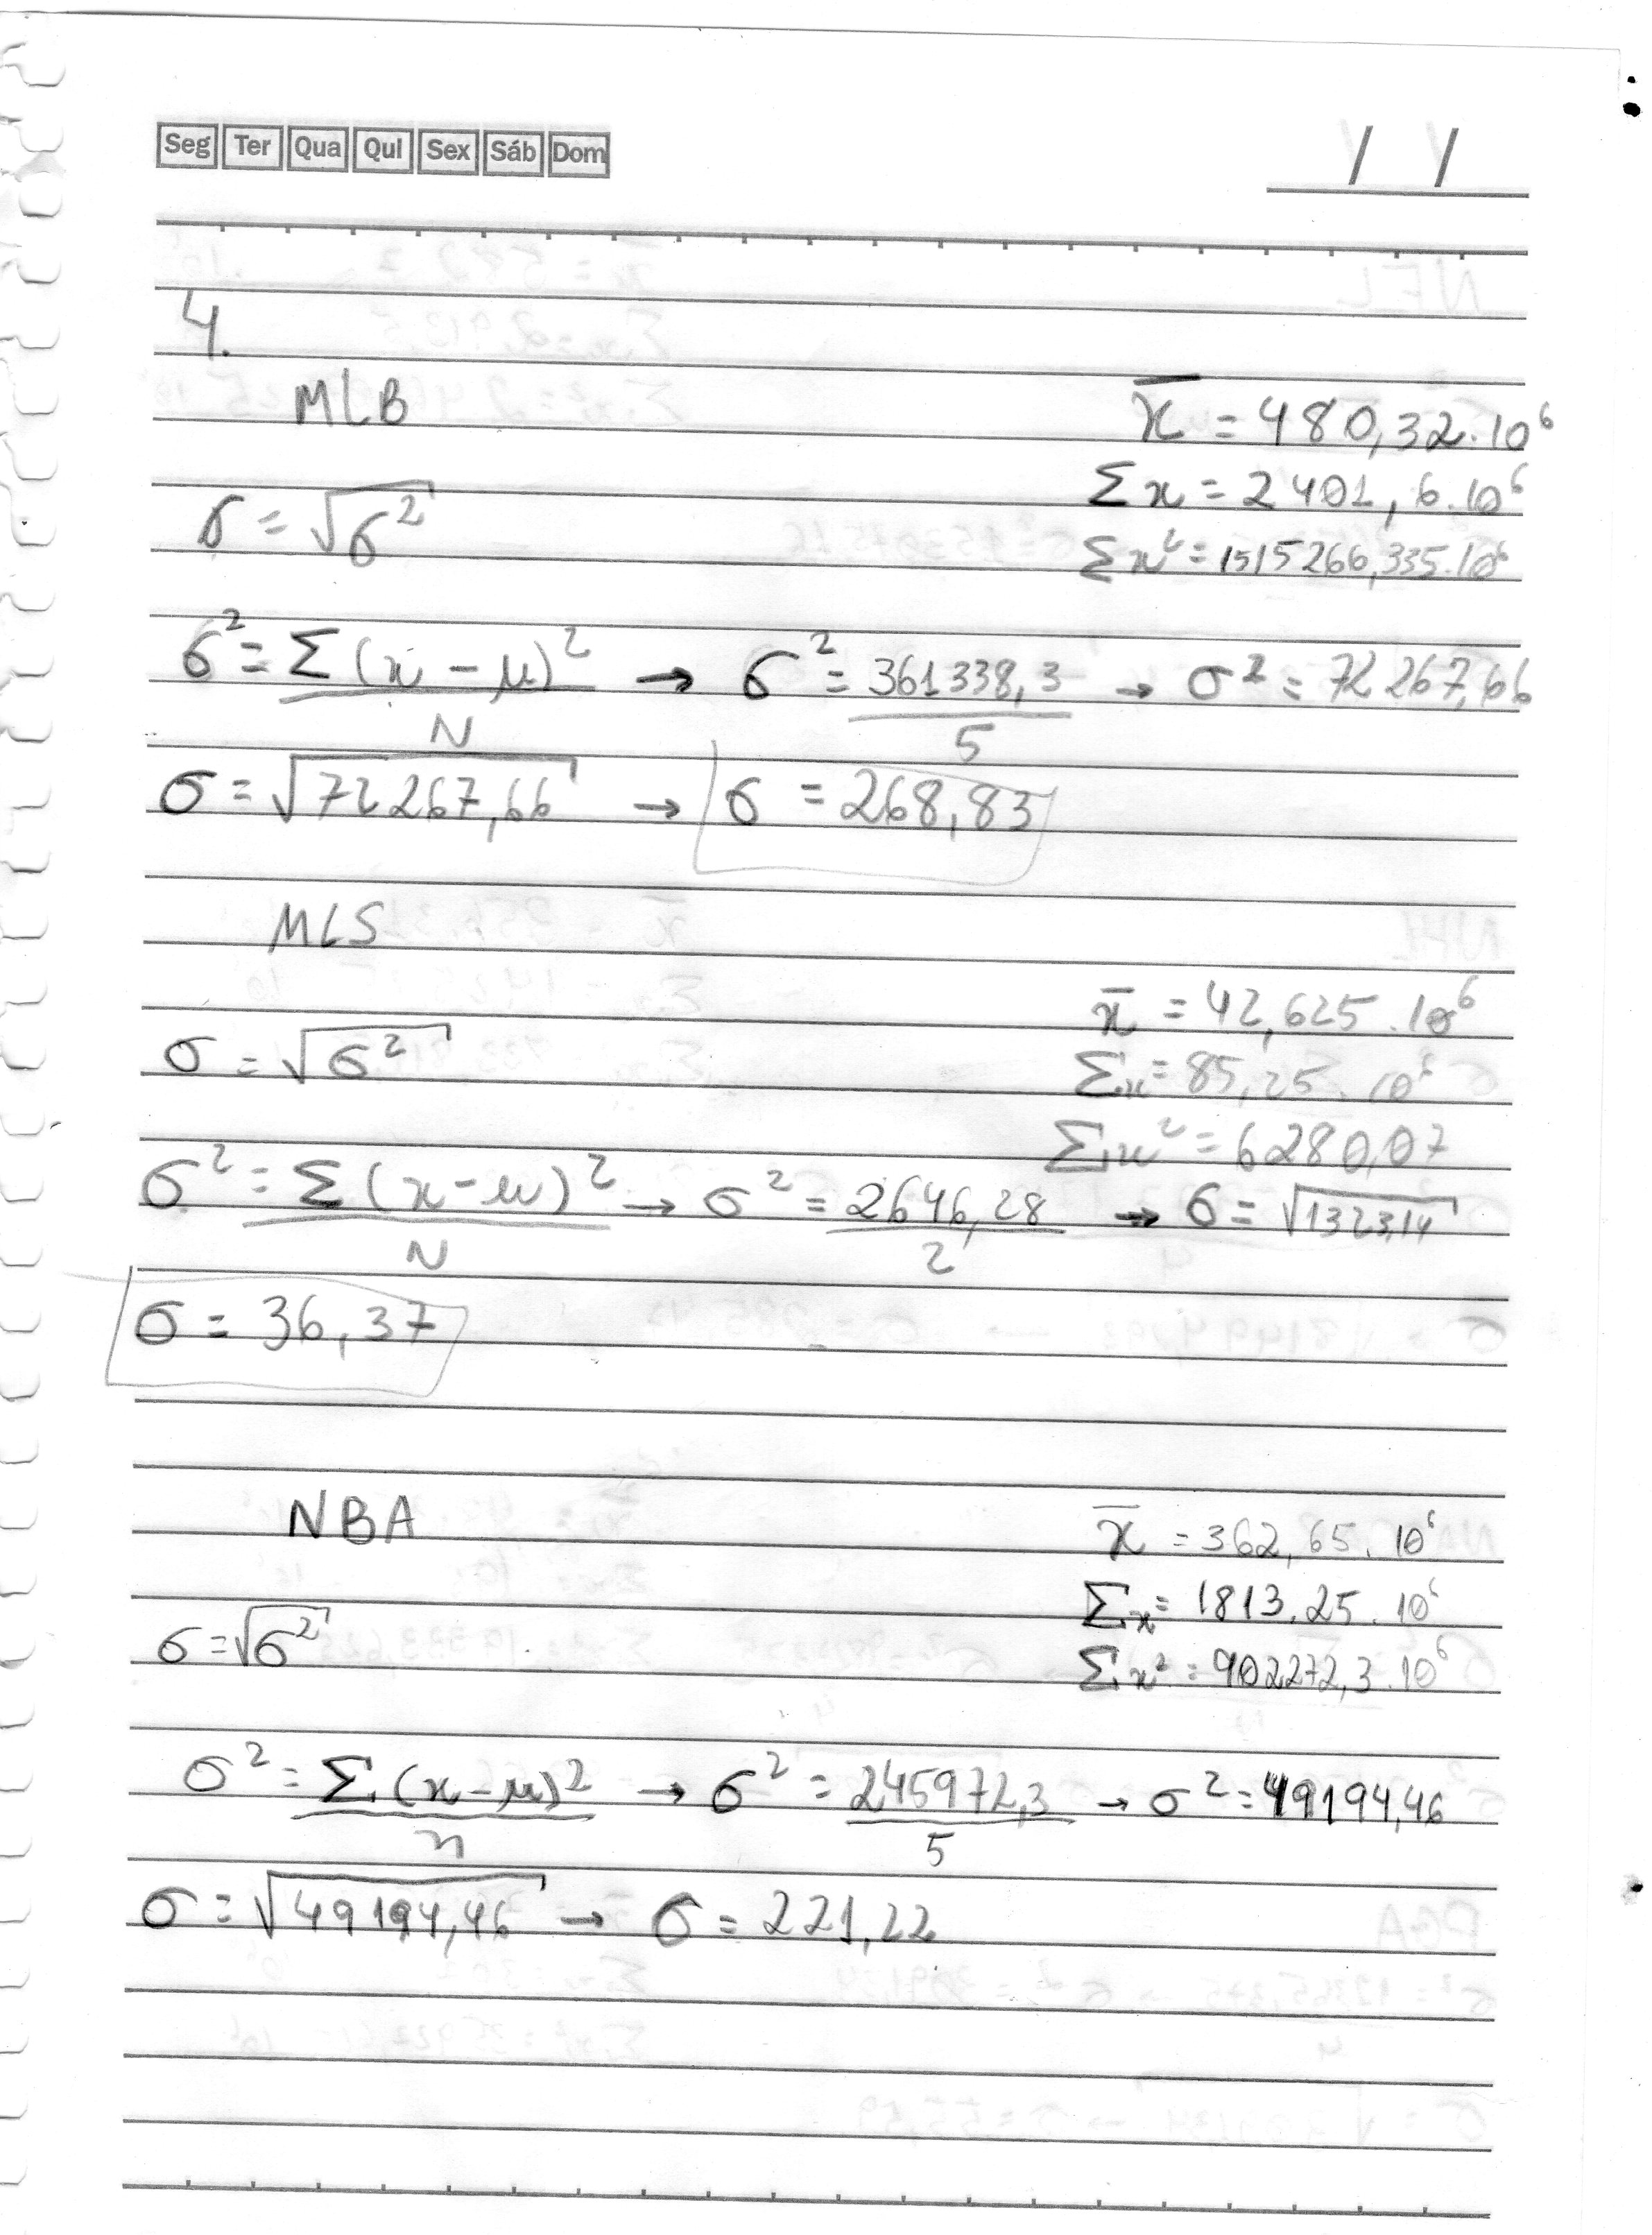 Seg Ter Qua Qui Sex Sáb Dom / /
4.
MLB
x̄ = 480,32.10⁶
Σx = 2401,6.10⁶
σ = √σ²
Σx² = 1515266,335.10⁶
σ² = Σ(x - μ)²/N → σ² = 361338,3/5 → σ² = 72267,66
σ = √72267,66 → σ = 268,83
MLS
x̄ = 42,625.10⁶
σ = √σ²
Σx = 85,25.10⁶
Σx² = 6280,07
σ² = Σ(x-μ)²/N → σ² = 2646,28/2 → σ = √1323,14
σ = 36,37
NBA
x̄ = 362,65.10⁶
Σx = 1813.25.10⁶
σ = √σ²
Σx² = 902272,3.10⁶
σ² = Σ(x-μ)²/n → σ² = 245972,3/5 → σ² = 49194,46
σ = √49194,46 → σ = 221,22